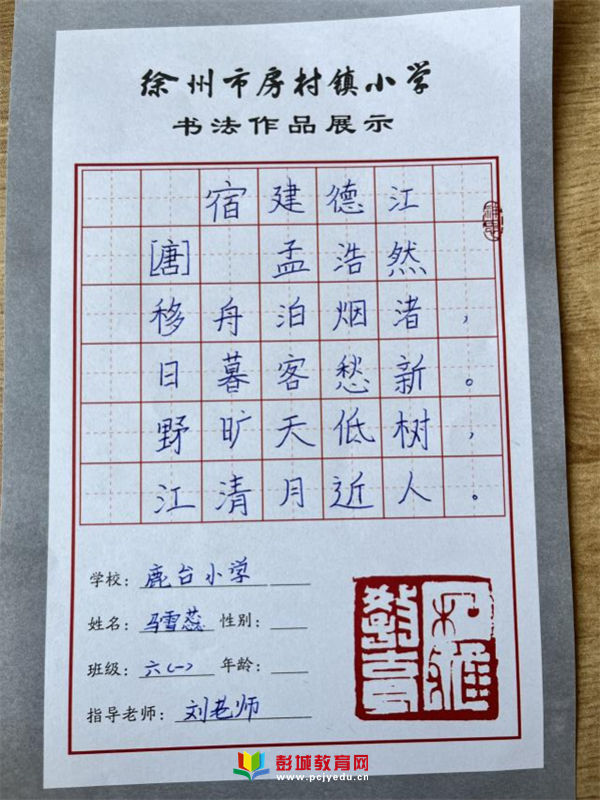 徐州市房村镇小学
书法作品展示
宿建德江
[唐] 孟浩然
移舟泊烟渚，
日暮客愁新。
野旷天低树，
江清月近人。
学校：鹿台小学
姓名：马雪蕊 性别：
班级：六(一) 年龄：
指导老师：刘老师
彭城教育网
www.pcjyedu.cn